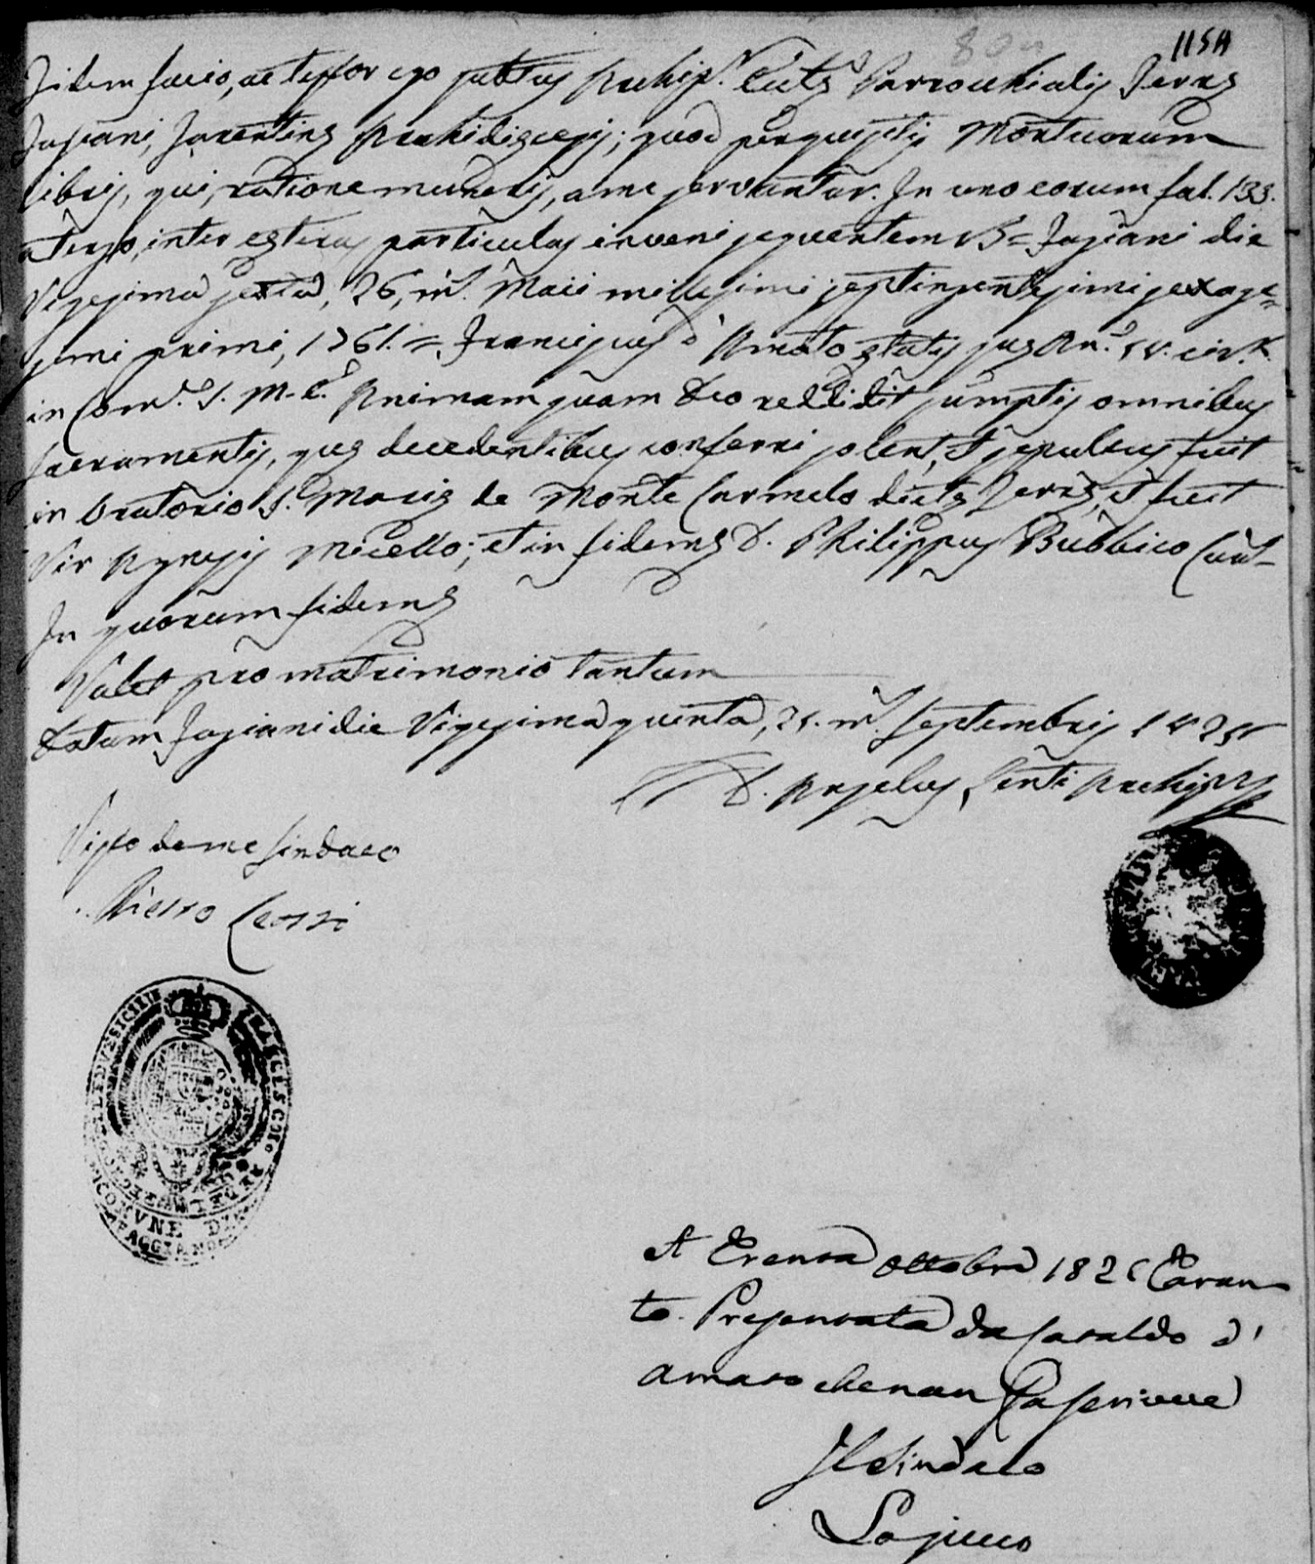 115A
Fidem facio, ac testor ego subtus Archip.r Eccl Parrochialis Terræ
Fasiani, Tarentinæ Archidiæcesis; quod perquisitis Mortuorum
libris, qui, ratione muneris, a me servantur. In uno eorum fol. 133.
a tergo, inter cæteras particulas inveni sequentem = Fasiani die
Vigesima sexta, 26, m. Maii millesimi septingentesimi sexage=
simi primi, 1761. = Franciscus d'Amato ætatis suæ An.
in Com. S. M. E. Animam suam Deo reddidit sumptis omnibus
Sacramentis, quæ decedentibus conferri solent, et sepultus fuit
in Oratorio S. Mariæ de Monte Carmelo dictæ Terræ, et fuit
Vir Agnesis Micello; et in fidem D. Philippus Bubbico
In quorum fidem
Valet pro matrimonio tantum
Datum Fasiani die Vigesima quinta, 25. m. Septembris 1825
D. Angelus Lenti Archip
Visto da me Sindaco
Pietro
FRANCESCO
REGNO DELLE DUE SICILIE
COMUNE DI
FAGGIANO
A Trenta Ottobre 182 Taran
to. Presentata da Cataldo d'
amato che non sa scrivere
Il Sindaco